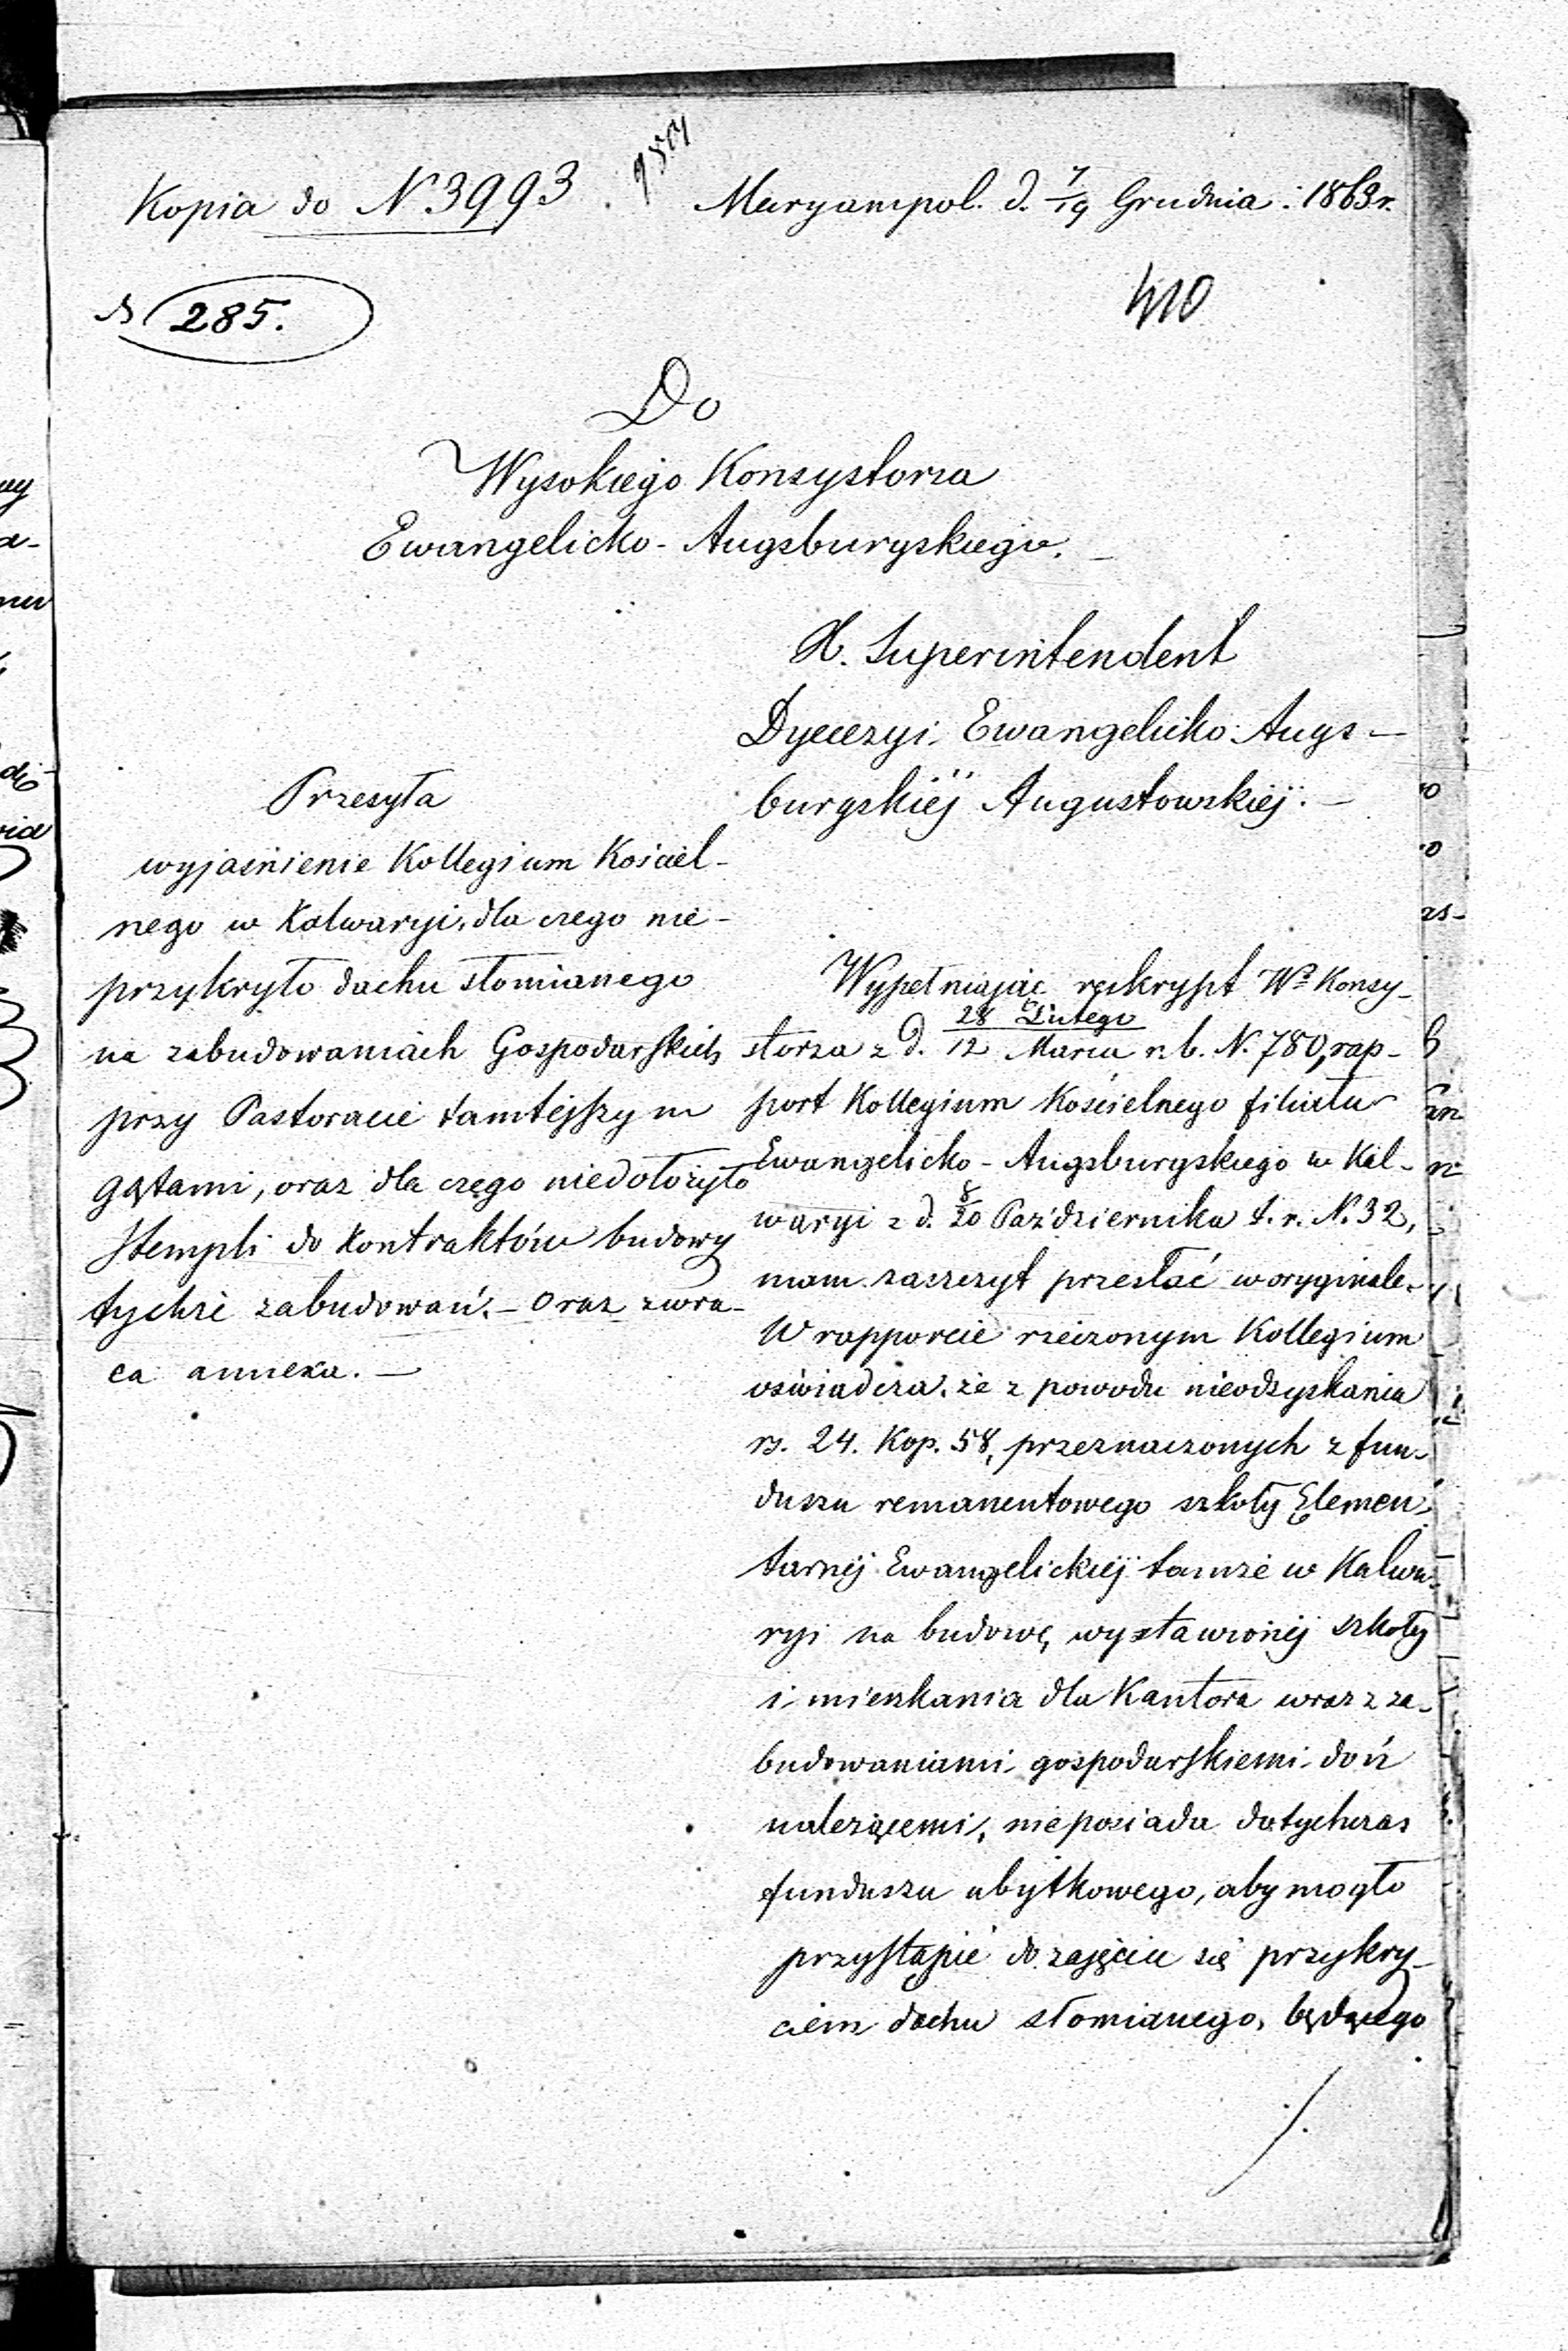 Kopia do N. 3993.
Maryampol. d. 7/19 Grudnia 1863 r.
N 285.
410
Do
Wysokiego Konsystorza
Ewangelicko-Augsburgskiego.
X. Superintendent
Dyecezyi Ewangelicko Augs-
burgskiéj Augustowskiéj.
Przesyła
wyjaśnienie Kollegium Kościel-
nego w Kalwaryi, dla czego nie-
przykryto dachu słomianego
na zabudowaniach Gospodarskich
przy Pastoracie tamtejszym
gątami, oraz dla czego niedołożyło
Stempli do Kontraktów budowy
tychże zabudowań. – Oraz zwra-
ca annexa. –
Wypełniając reskrypt Wo Konsy-
storza z d. 28 Lutego / 12 Marca r. b. N. 780, rap-
port Kollegium Kościelnego filiału
Ewangelicko-Augsburgskiego w Kal-
waryi z d. 8/20 Października t. r. N. 32,
mam zaszczyt przesłać w oryginale.
W rapporcie rzeczonym Kollegium
oświadcza, że z powodu nieodzyskania
rs. 24. Kop. 58, przeznaczonych z fun-
duszu remanentowego szkoły Elemen-
tarnéj Ewangelickiéj tamże w Kalwa-
ryi na budowę wystawionéj szkoły
i mieszkania dla Kantora wraz z za-
budowaniami gospodarskiemi doń
należącemi, nieposiada dotychczas
funduszu zbytkowego, aby mogło
przystąpić do zajęcia się przykry-
ciem dachu słomianego, będącego
./.